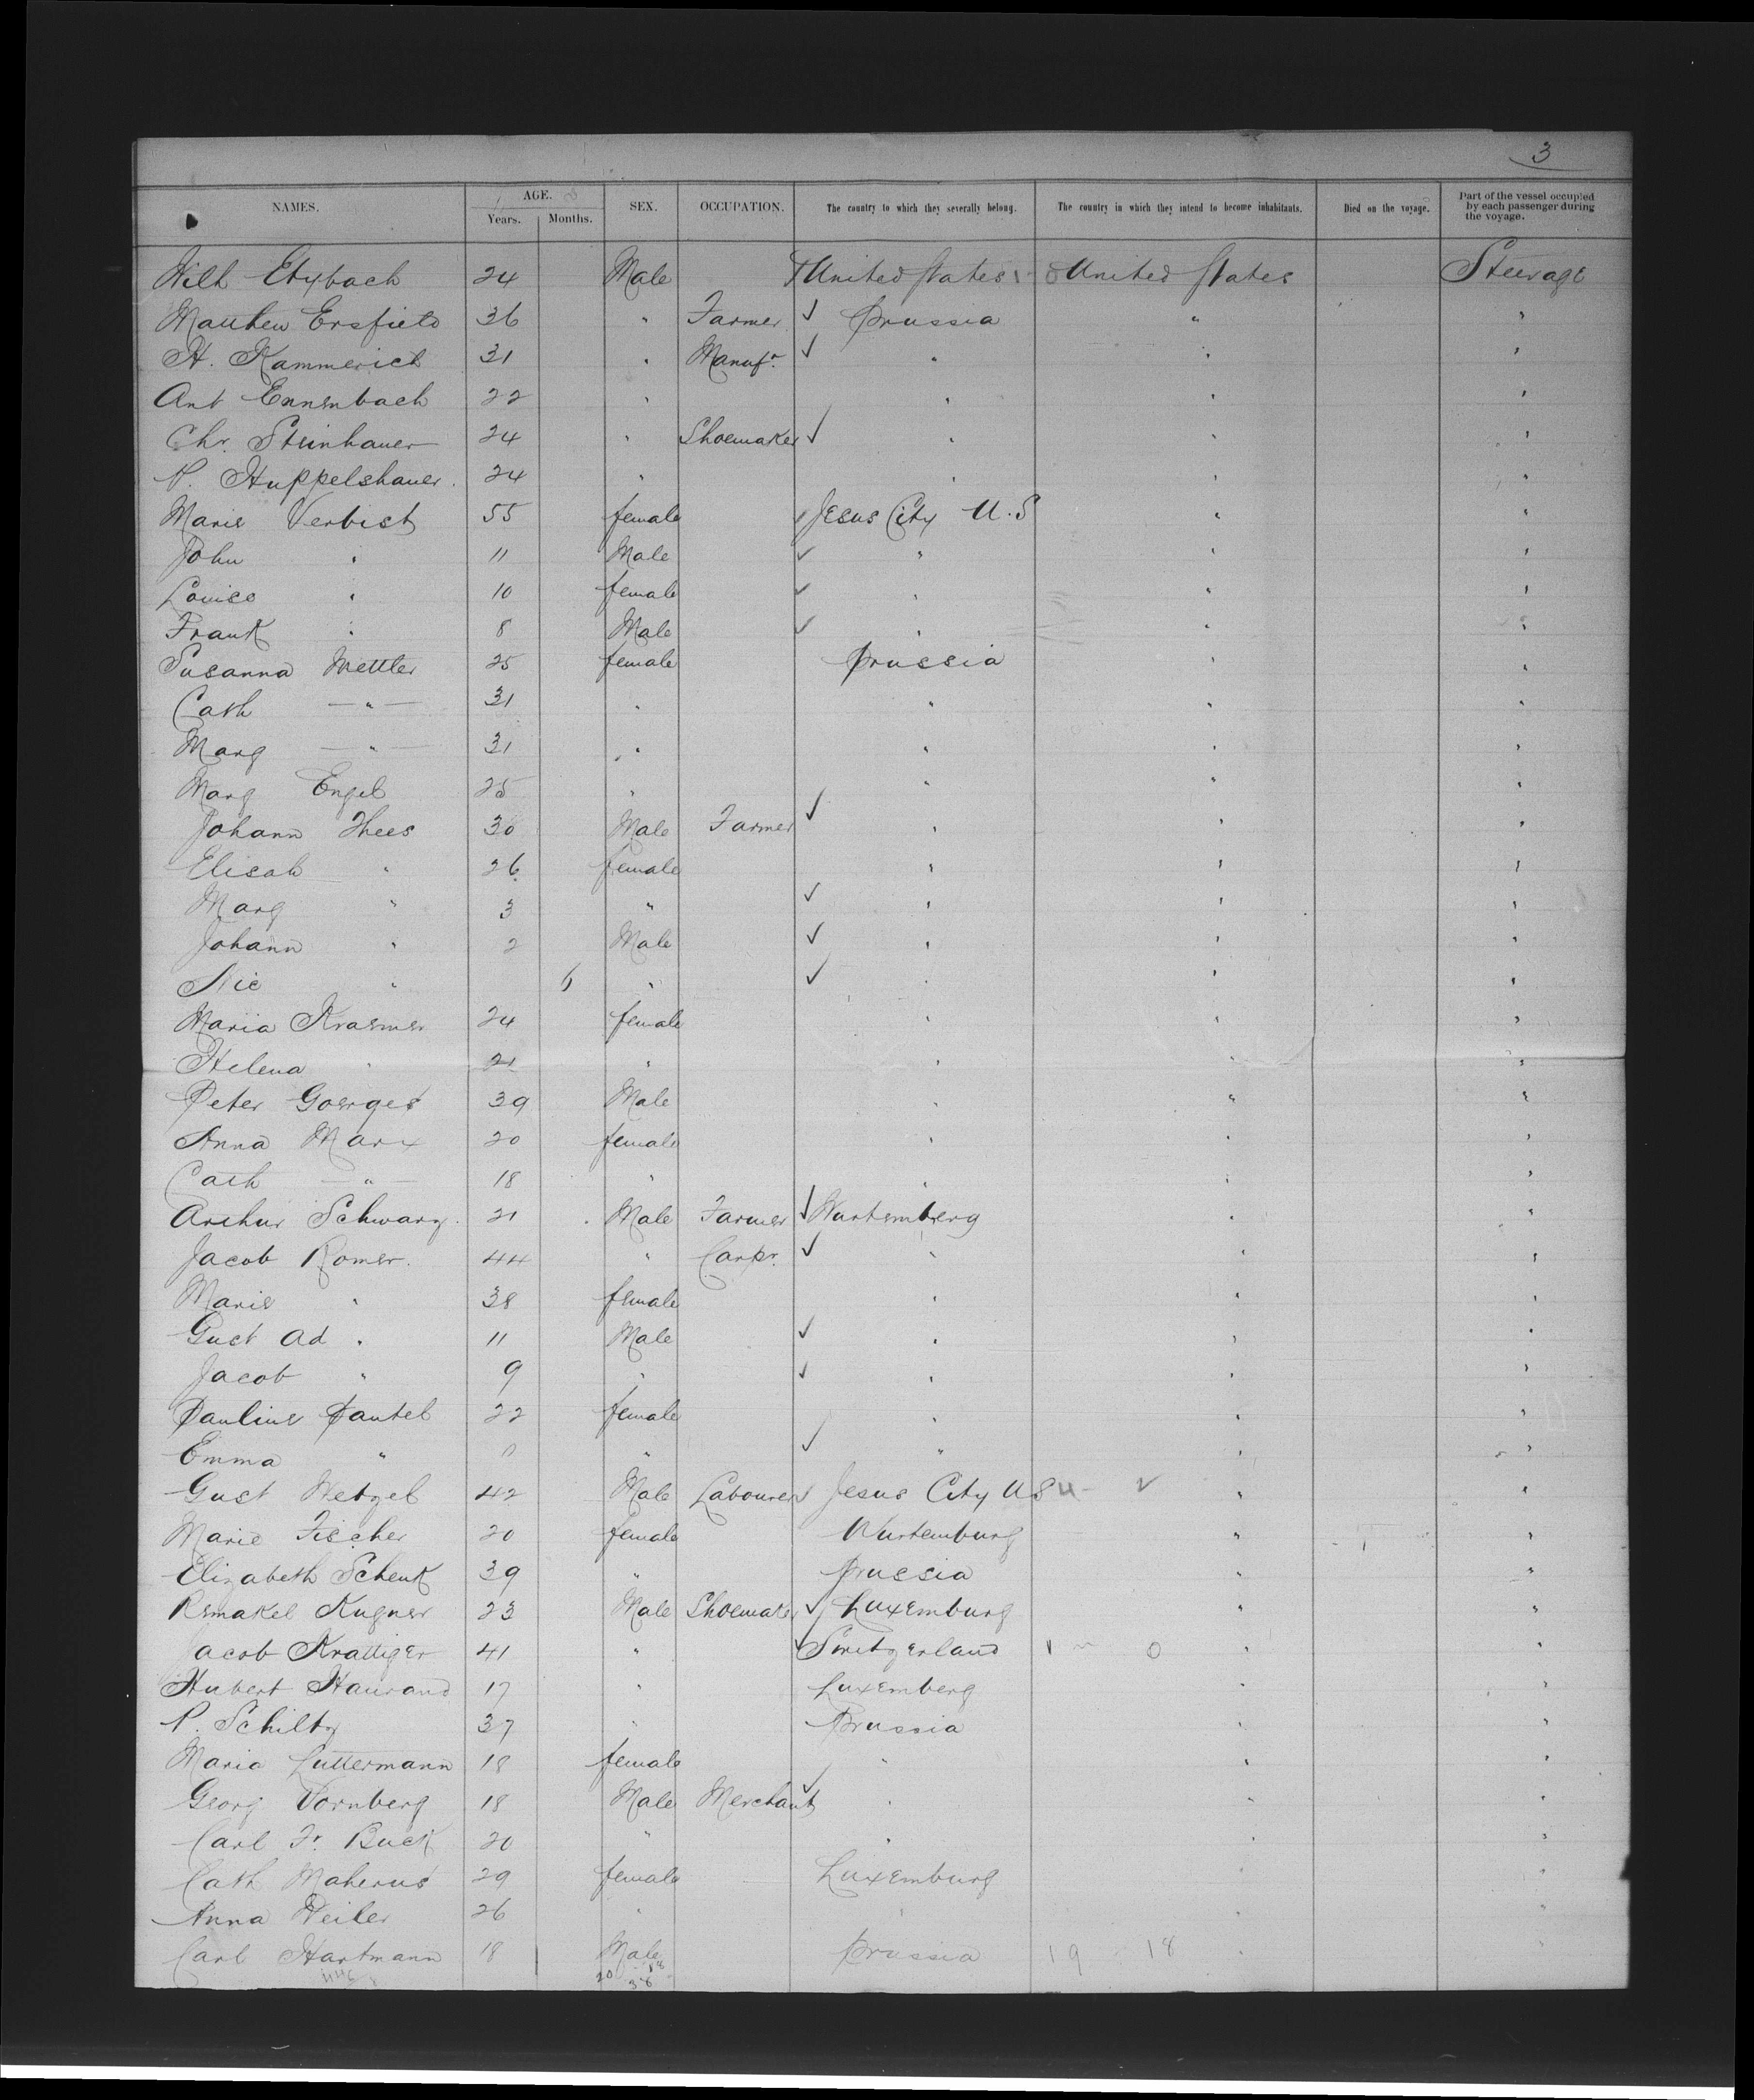 3
NAMES. AGE. Years. Months. SEX. OCCUPATION. The country to which they severally belong. The country in which they intend to become inhabitants. Died on the voyage. Part of the vessel occupied by each passenger during the voyage.
Wilh Etzbach 24 Male United States United States Steerage
Matthew Ersfield 36 " Farmer ✓ Prussia " "
H. Kammerich 31 " Manufr. ✓ " " "
Ant Ennenbach 22 " " " "
Chr. Steinhauer 24 " Shoemaker ✓ " " "
P. Huppelshauer. 24 " " " "
Marie Verbist 55 female Jesus City U.S " "
John " 11 Male ✓ " " "
Louise " 10 female ✓ " " "
Frank " 8 Male ✓ " " "
Susanna Mettler 25 female Prussia " "
Cath —"— 31 " " " "
Marg —"— 31 " " " "
Marg Engel 25 " " " "
Johann Thees 30 Male Farmer ✓ " " "
Elisab " 26 female " " "
Marg " 3 " ✓ " " "
Johann " 2 Male ✓ " " "
Nic " 6 " ✓ " " "
Maria Kraemer 24 female " " "
Helena " 21 " " " "
Peter Goerges 39 Male " " "
Anna Marx 20 female " " "
Cath —"— 18 " " " "
Arthur Schwarz. 21 Male Farmer ✓ Wurtemberg " "
Jacob Romer. 44 " Carpr. ✓ " " "
Marie " 38 female " " "
Gust Ad " 11 Male ✓ " " "
Jacob " 9 " ✓ " " "
Pauline Pantel 22 female " " "
Emma " " ✓ " " "
Gust Wetzel 42 Male Labourer ✓ Jesus City US " "
Marie Fischer 20 female Wurtemburg " "
Elizabeth Schenk 39 " Prussia " "
Remakel Kugner 23 Male Shoemaker ✓ Luxemburg " "
Jacob Krattiger 41 " ✓ Switzerland 1 0 " "
Hubert Haurand 17 " Luxemberg " "
P. Schiltz 37 " Prussia " "
Maria Luttermann 18 female " " "
Georg Vornberg 18 Male Merchant ✓ " " "
Carl Fr. Buck 20 " " " "
Cath Maherus 29 female Luxemburg " "
Anna Weiler 26 " " " "
Carl Hartmann 18 Male Prussia 19 18 " "
20 18
38